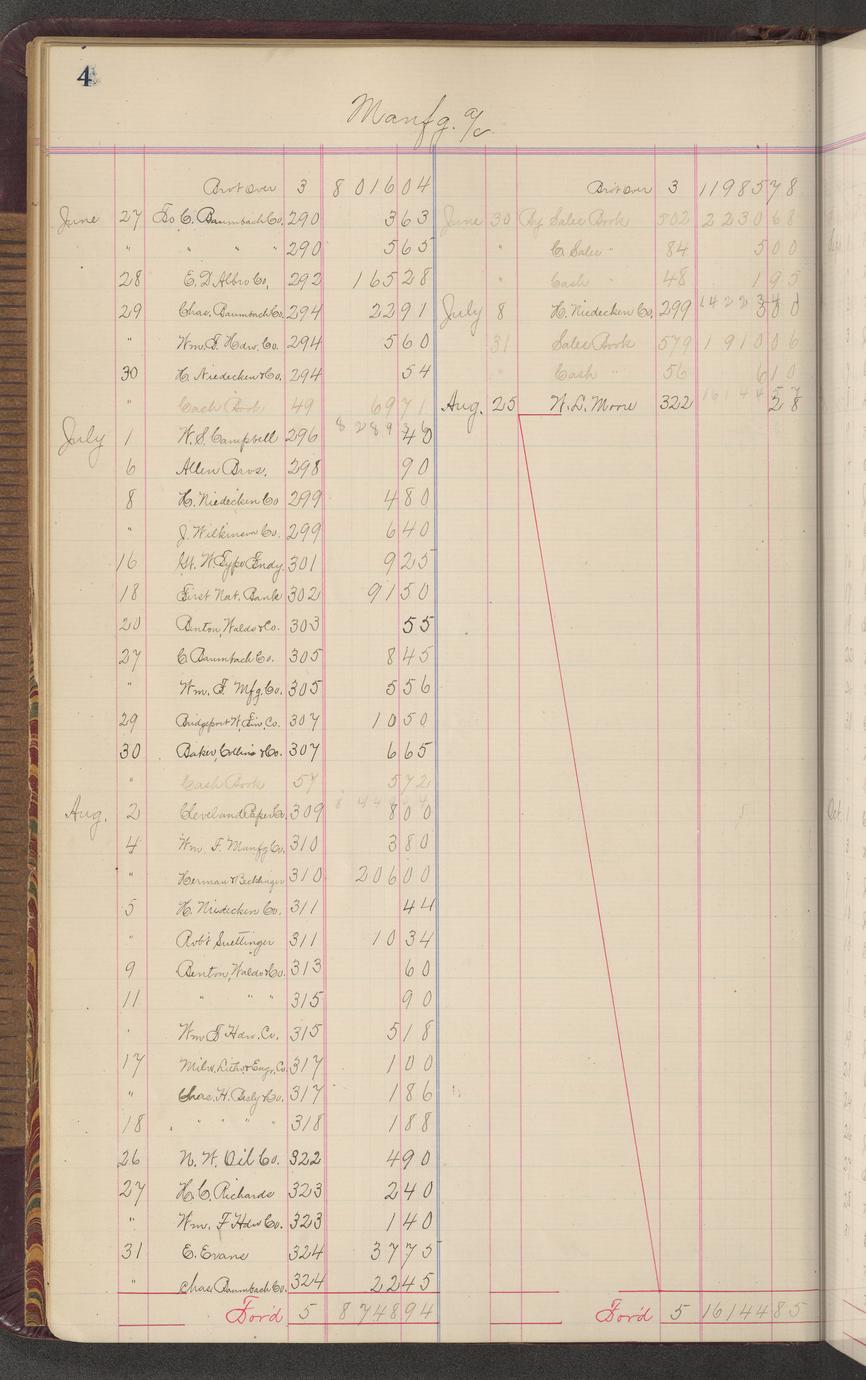 4
Manfg. a/c
Bro't over 3 8 016 04
June 27 To C. Baumbach Co. 290 3 63
" " " " 290 5 65
28 E. D. Albro Co, 292 165 28
29 Chas. Baumbach Co. 294 22 91
" Wm. F. Hdw. Co. 294 5 60
30 H. Niedecken & Co. 294 54
" Cash Book 49 69 71
8 289 36
July 1 W. S. Campbell 296 40
6 Allen Bros. 298 90
8 H. Niedecken Co 299 4 80
" J. Wilkinson Co. 299 6 40
16 N. W. Type Fndy. 301 9 25
18 First Nat. Bank 302 91 50
20 Benton, Waldo & Co. 303 55
27 C. Baumbach Co. 305 8 45
" Wm. F. Mfg. Co. 305 5 56
29 Bridgeport Co. 307 10 50
30 Baker, Collins & Co. 307 6 65
" Cash Book 57 5 72
Aug. 2 Cleveland Paper Co. 309 8 00
4 Wm. F. Manfg Co. 310 3 80
" Herman & 310 206 00
5 H. Niedecken Co. 311 44
" Rob't Suettinger 311 10 34
9 Benton, Waldo & Co. 313 60
11 " " " 315 90
" Wm F Hdw. Co. 315 5 18
17 Milw. Litho. & Eng. Co. 317 1 00
" Chas. H. Besly & Co. 317 1 86
18 " " " " 318 1 88
26 N. W. Oil Co. 322 4 90
27 H. C. Richards 323 2 40
" Wm. F Hdw Co. 323 1 40
31 E. Evans 324 37 75
" Chas. Baumbach Co. 324 22 45
For'd 5 8 748 94
Bro't over 3 11 985 78
June 30 By Sales Book 502 2 230 68
" C. Sales " 84 5 00
" Cash " 48 1 95
July 8 H. Niedecken Co. 299 3 80
31 Sales Book 579 1 910 06
" Cash " 56 6 10
Aug. 25 W. L. Moore 322 28
For'd 5 16 144 85